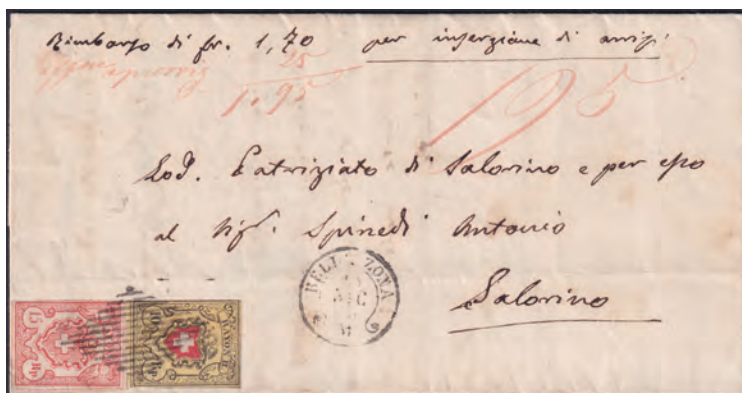 Rimborso di fr. 1,70 per inserzione di avvisi
25
1.95
195
Lod. Patriziato di Salorino e per esso
al Sig. Spinedi Antonio
Salorino
BELLINZONA
15 Rp.
RAYON II
10 Rp.